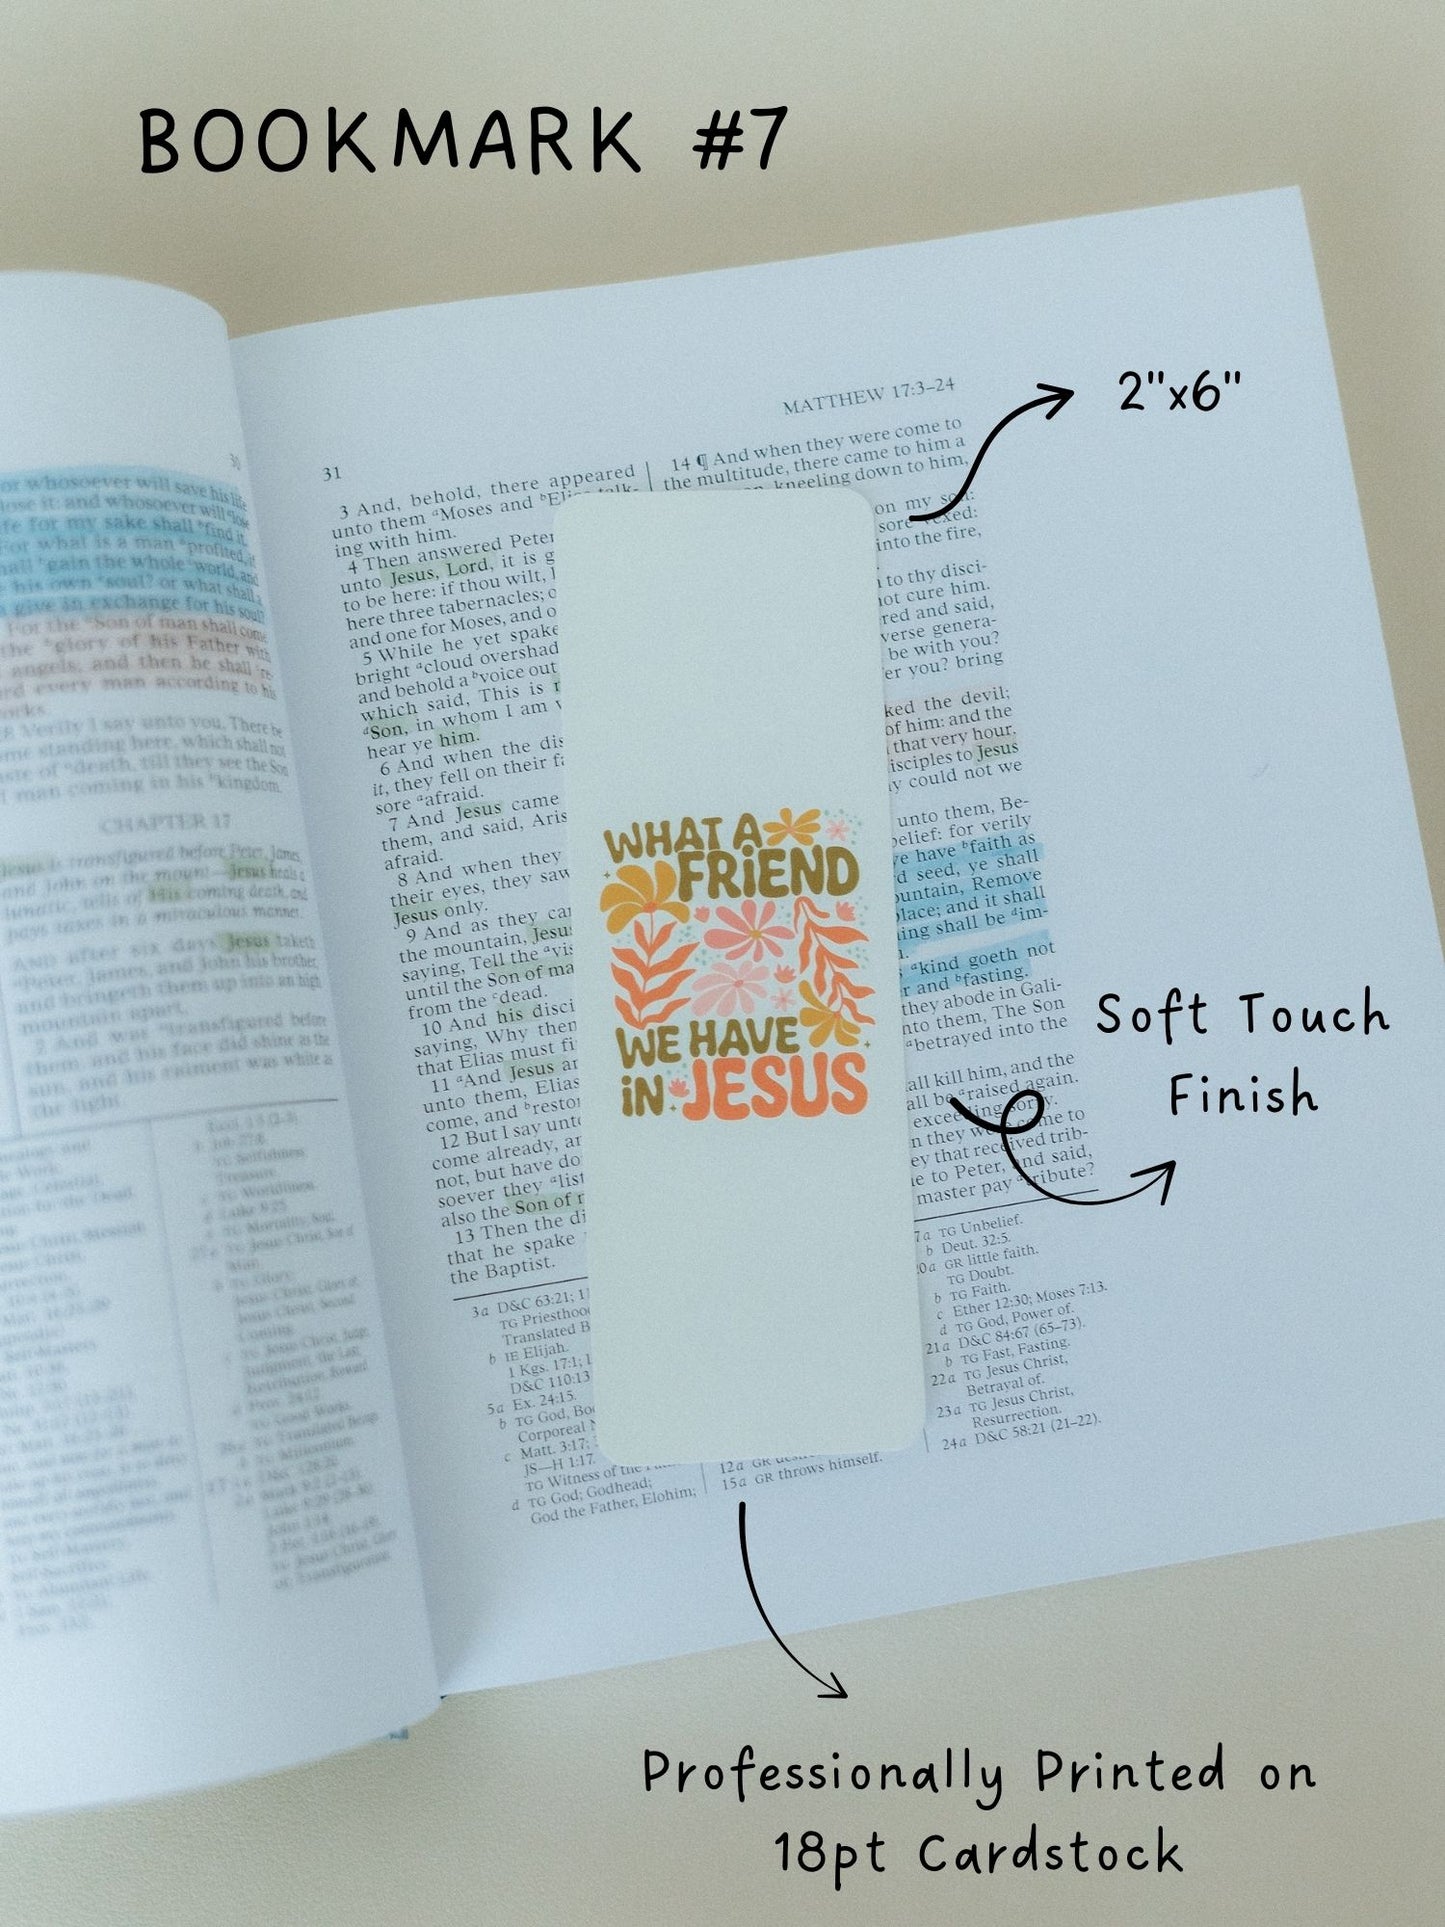 BOOKMARK #7
2"x6"
Soft Touch
Finish
Professionally Printed on
18pt Cardstock
WHAT A
FRiEND
WE HAVE
iN JESUS
31
MATTHEW 17:3–24
3 And, behold, there appeared
unto them ᵃMoses and ᵇElias talk-
ing with him.
4 Then answered Peter
unto Jesus, Lord, it is g
to be here: if thou wilt, l
here three tabernacles; o
and one for Moses, and o
5 While he yet spake
bright ᵃcloud overshad
and behold a ᵇvoice out
which said, This is
ᵈSon, in whom I am
hear ye him.
6 And when the dis
it, they fell on their fa
sore ᵃafraid.
7 And Jesus came
them, and said, Aris
afraid.
8 And when they
their eyes, they saw
Jesus only.
9 And as they ca
the mountain, Jesus
saying, Tell the ᵃvis
until the Son of ma
from the ᶜdead.
10 And his disci
saying, Why then
that Elias must fi
11 ᵃAnd Jesus an
unto them, Elias
come, and ᵇrestor
12 But I say unto
come already, an
not, but have do
soever they ᵃlist
also the Son of
13 Then the di
that he spake
the Baptist.
14 ¶ And when they were come to
the multitude, there came to him a
kneeling down to him,
on my son:
sore vexed:
into the fire,
to thy disci-
not cure him.
red and said,
verse genera-
be with you?
er you? bring
ked the devil;
of him: and the
that very hour.
isciples to Jesus
y could not we
unto them, Be-
belief: for verily
ve have ᵇfaith as
d seed, ye shall
ountain, Remove
place; and it shall
ing shall be ᵈim-
ᵃkind goeth not
r and ᵇfasting.
they abode in Gali-
nto them, The Son
ᵃbetrayed into the
all kill him, and the
all be ᵃraised again.
exceeding sorry.
n they were come to
ey that received trib-
e to Peter, and said,
master pay ᵃtribute?
3a D&C 63:21;
TG Priesthood
Translated B
b IE Elijah.
1 Kgs. 17:1;
D&C 110:13
5a Ex. 24:15.
b TG God, Bo
Corporeal
c Matt. 3:17;
JS—H 1:17.
TG Witness of the
d TG God; Godhead;
God the Father, Elohim;
12a GR
15a GR throws himself.
7a TG Unbelief.
b Deut. 32:5.
20a GR little faith.
TG Doubt.
b TG Faith.
c Ether 12:30; Moses 7:13.
d TG God, Power of.
21a D&C 84:67 (65–73).
b TG Fast, Fasting.
22a TG Jesus Christ,
Betrayal of.
23a TG Jesus Christ,
Resurrection.
24a D&C 58:21 (21–22).
30
or whosoever will save his life
lose it: and whosoever will ᵃlose
fe for my sake shall ᵇfind it.
For what is a man ᵃprofited, if
hall ᵇgain the whole ᶜworld, and
e his own ᵈsoul? or what shall a
n give in exchange for his soul?
For the ᵃSon of man shall come
the ᵇglory of his Father with
angels; and then he shall ᶜre-
rd every man according to his
orks.
Verily I say unto you, There be
me standing here, which shall not
aste of ᵃdeath, till they see the Son
f man coming in his ᵇkingdom.
CHAPTER 17
Jesus is transfigured before Peter, James,
and John on the mount—Jesus heals a
lunatic, tells of His coming death, and
pays taxes in a miraculous manner.
AND after six days Jesus taketh
ᵃPeter, James, and John his brother,
and bringeth them up into an high
mountain apart,
2 And was ᵃtransfigured before
them: and his face did shine as the
sun, and his raiment was white as
the light.